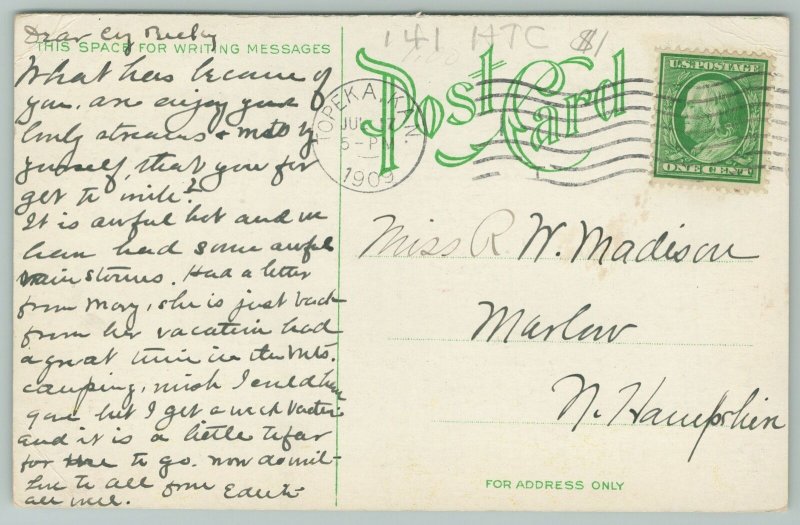 Dear
THIS SPACE FOR WRITING MESSAGES
What has become of
you, are enjoy
lonly streams &
yourself, that you for
get to write?
It is awful hot and we
have had some awful
rain storms. Had a letter
from Mary, she is just back
from her vacation had
a great time in the Mts.
camping, wish I could have
gone but I get a week
and it is a little to far
for me to go. now do write
Love to all from Edith
all well.
141 HTC $1
Post Card
TOPEKA, KAN.
JUL 17
5-PM
1909
U.S. POSTAGE
ONE CENT
Miss R. W. Madison
Marlow
N. Hampshire
FOR ADDRESS ONLY